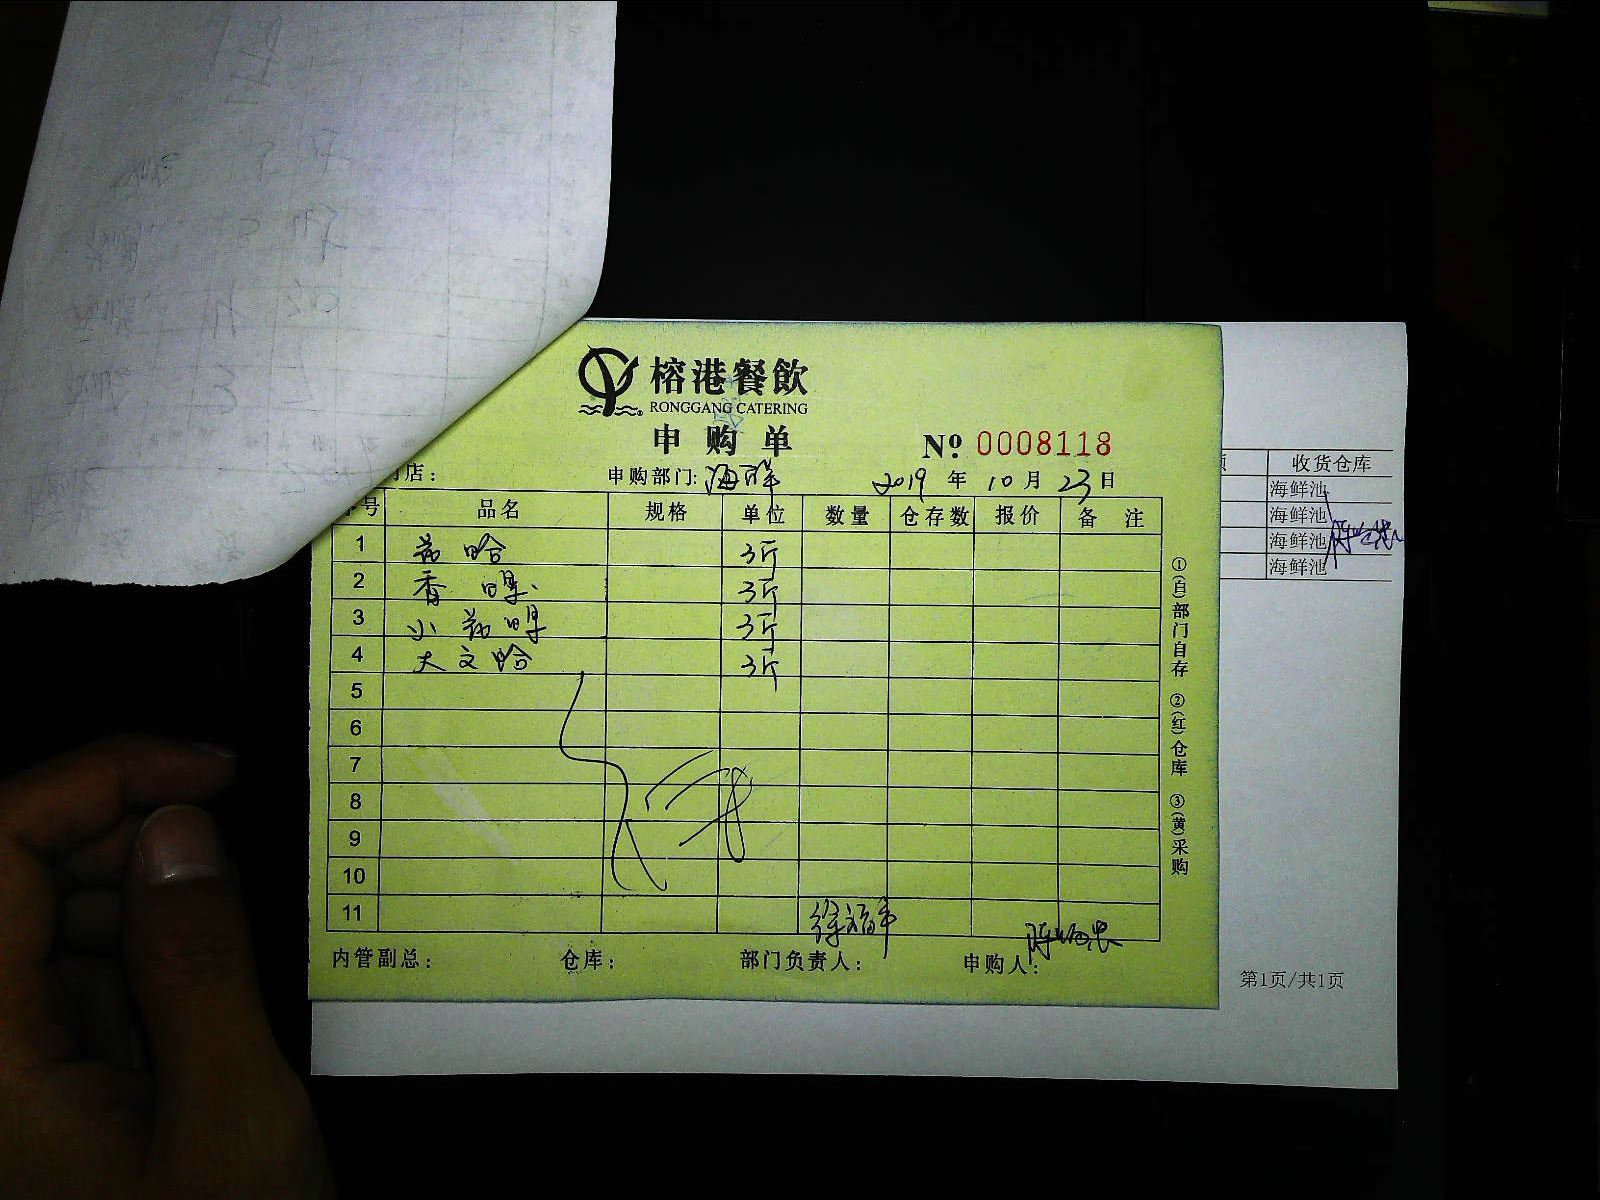 榕港餐飲
RONGGANG CATERING
申购单
№ 0008118
店： 申购部门: 海鲜 2019 年 10 月 23 日
号 品名 规格 单位 数量 仓存数 报价 备 注
1 花哈 3斤
2 香螺 3斤
3 小花螺 3斤
4 大文哈 3斤
5
6
7
8
9
10
11
内管副总： 仓库： 部门负责人： 徐福平 申购人：
①(白)部门自存 ②(红)仓库 ③(黄)采购
收货仓库
海鲜池
海鲜池
海鲜池
海鲜池
第1页/共1页